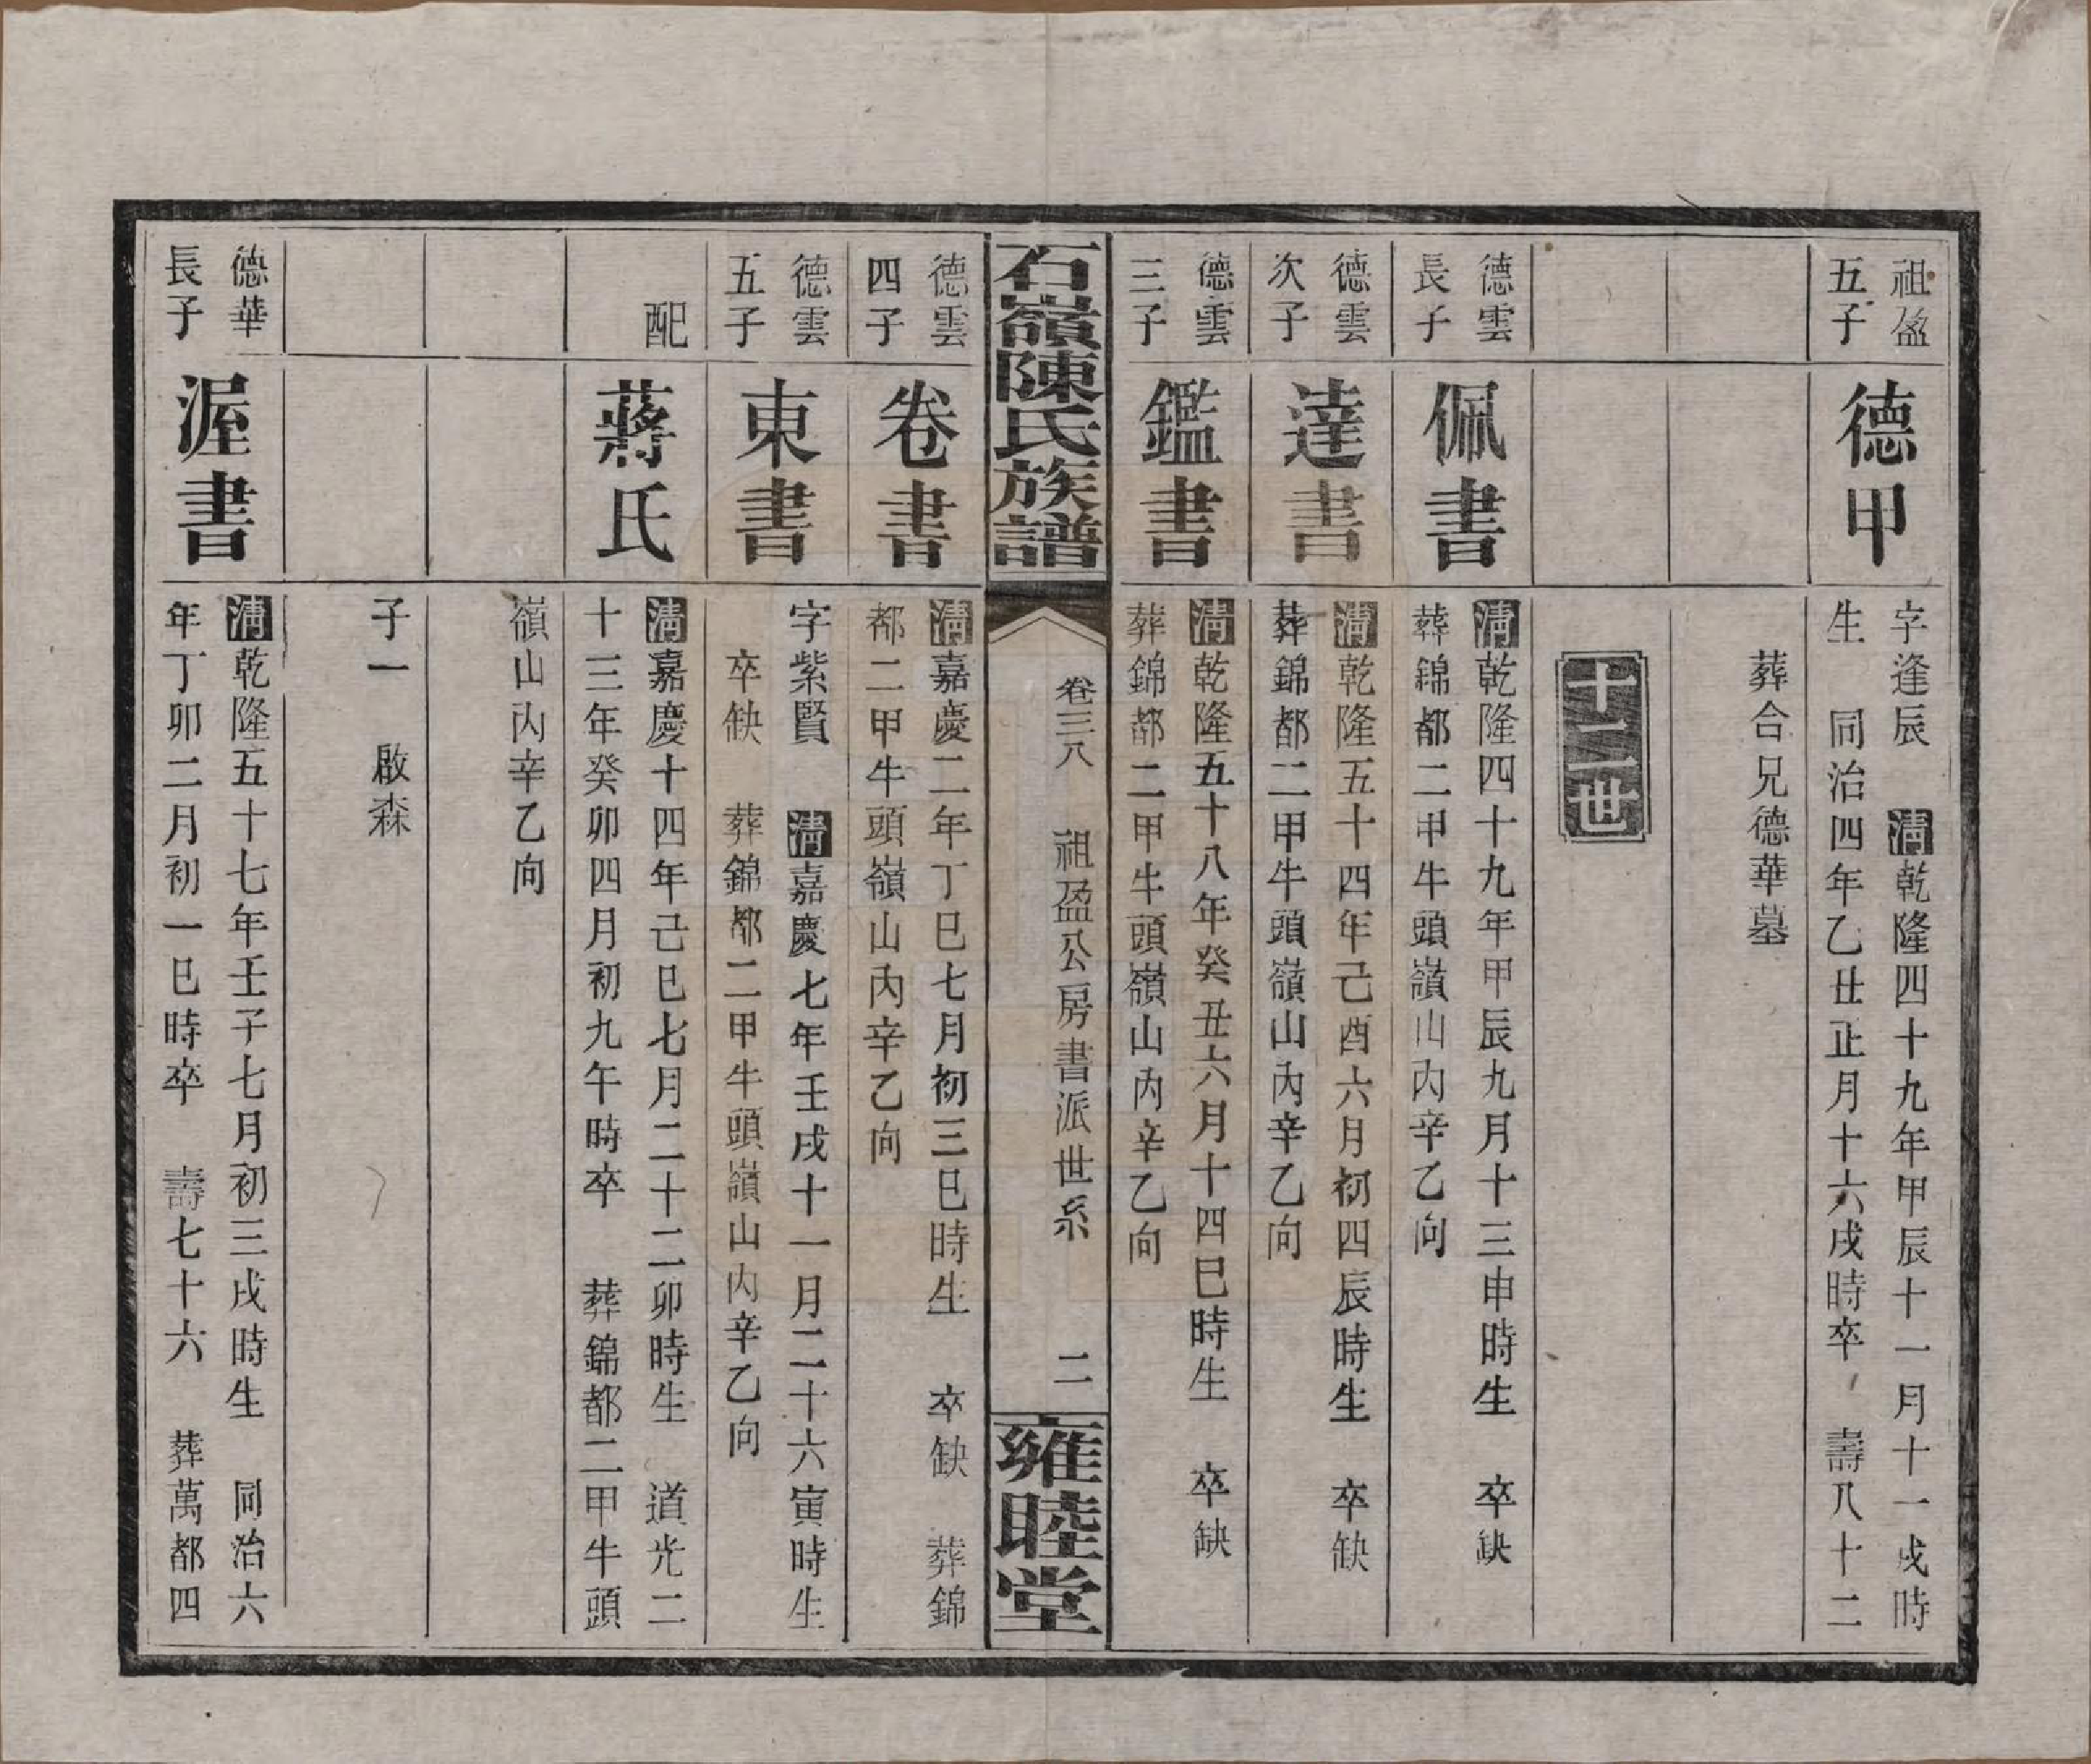 祖盈
五子
德甲
字逢辰　清乾隆四十九年甲辰十一月十一戌時
生　同治四年乙丑正月十六戌時卒　壽八十二
葬合兄德華墓
十二世
德雲
長子
佩書
清乾隆四十九年甲辰九月十三申時生　卒缺
葬錦都二甲牛頭嶺山內辛乙向
德雲
次子
達書
清乾隆五十四年己酉六月初四辰時生　卒缺
葬錦都二甲牛頭嶺山內辛乙向
德雲
三子
鑑書
清乾隆五十八年癸丑六月十四巳時生　卒缺
葬錦都二甲牛頭嶺山內辛乙向
石嶺陳氏族譜
卷三八　祖盈公房書派世系　二
雍睦堂
德雲
四子
卷書
清嘉慶二年丁巳七月初三巳時生　卒缺　葬錦
都二甲牛頭嶺山內辛乙向
德雲
五子
東書
字紫賢　清嘉慶七年壬戌十一月二十六寅時生
卒缺　葬錦都二甲牛頭嶺山內辛乙向
配
蔣氏
清嘉慶十四年己巳七月二十二卯時生　道光二
十三年癸卯四月初九午時卒　葬錦都二甲牛頭
嶺山內辛乙向
子一　啟森
德華
長子
渥書
清乾隆五十七年壬子七月初三戌時生　同治六
年丁卯二月初一巳時卒　壽七十六　葬萬都四